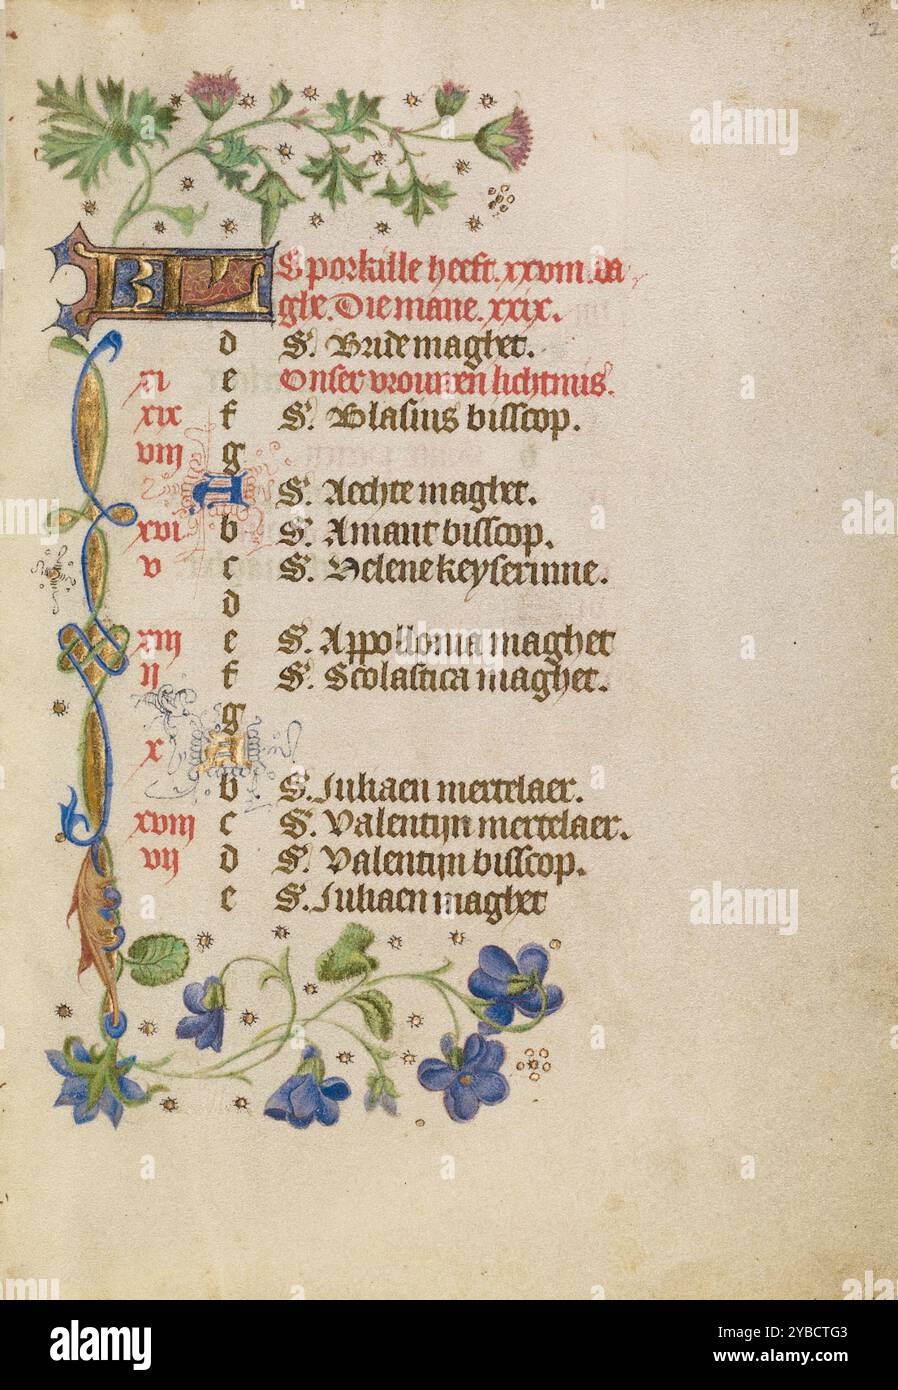 2
KL Sporkille heeft. xxviii. da
ghe. Die mane. xxix.
d S. Bride maghet.
xi e Onser vrouwen lichtmis.
xix f S. Blasius bisscop.
viij g
A S. Aechte maghet.
xvi b S. Amant bisscop.
v c S. Helene keyserinne.
d
xiij e S. Appollonia maghet
ij f S. Scolastica maghet.
g
x A
b S. Juliaen mertelaer.
xviij c S. Valentijn mertelaer.
vij d S. Valentijn bisscop.
e S. Juliaen maghet
alamy
Image ID: 2YBCTG3
www.alamy.com